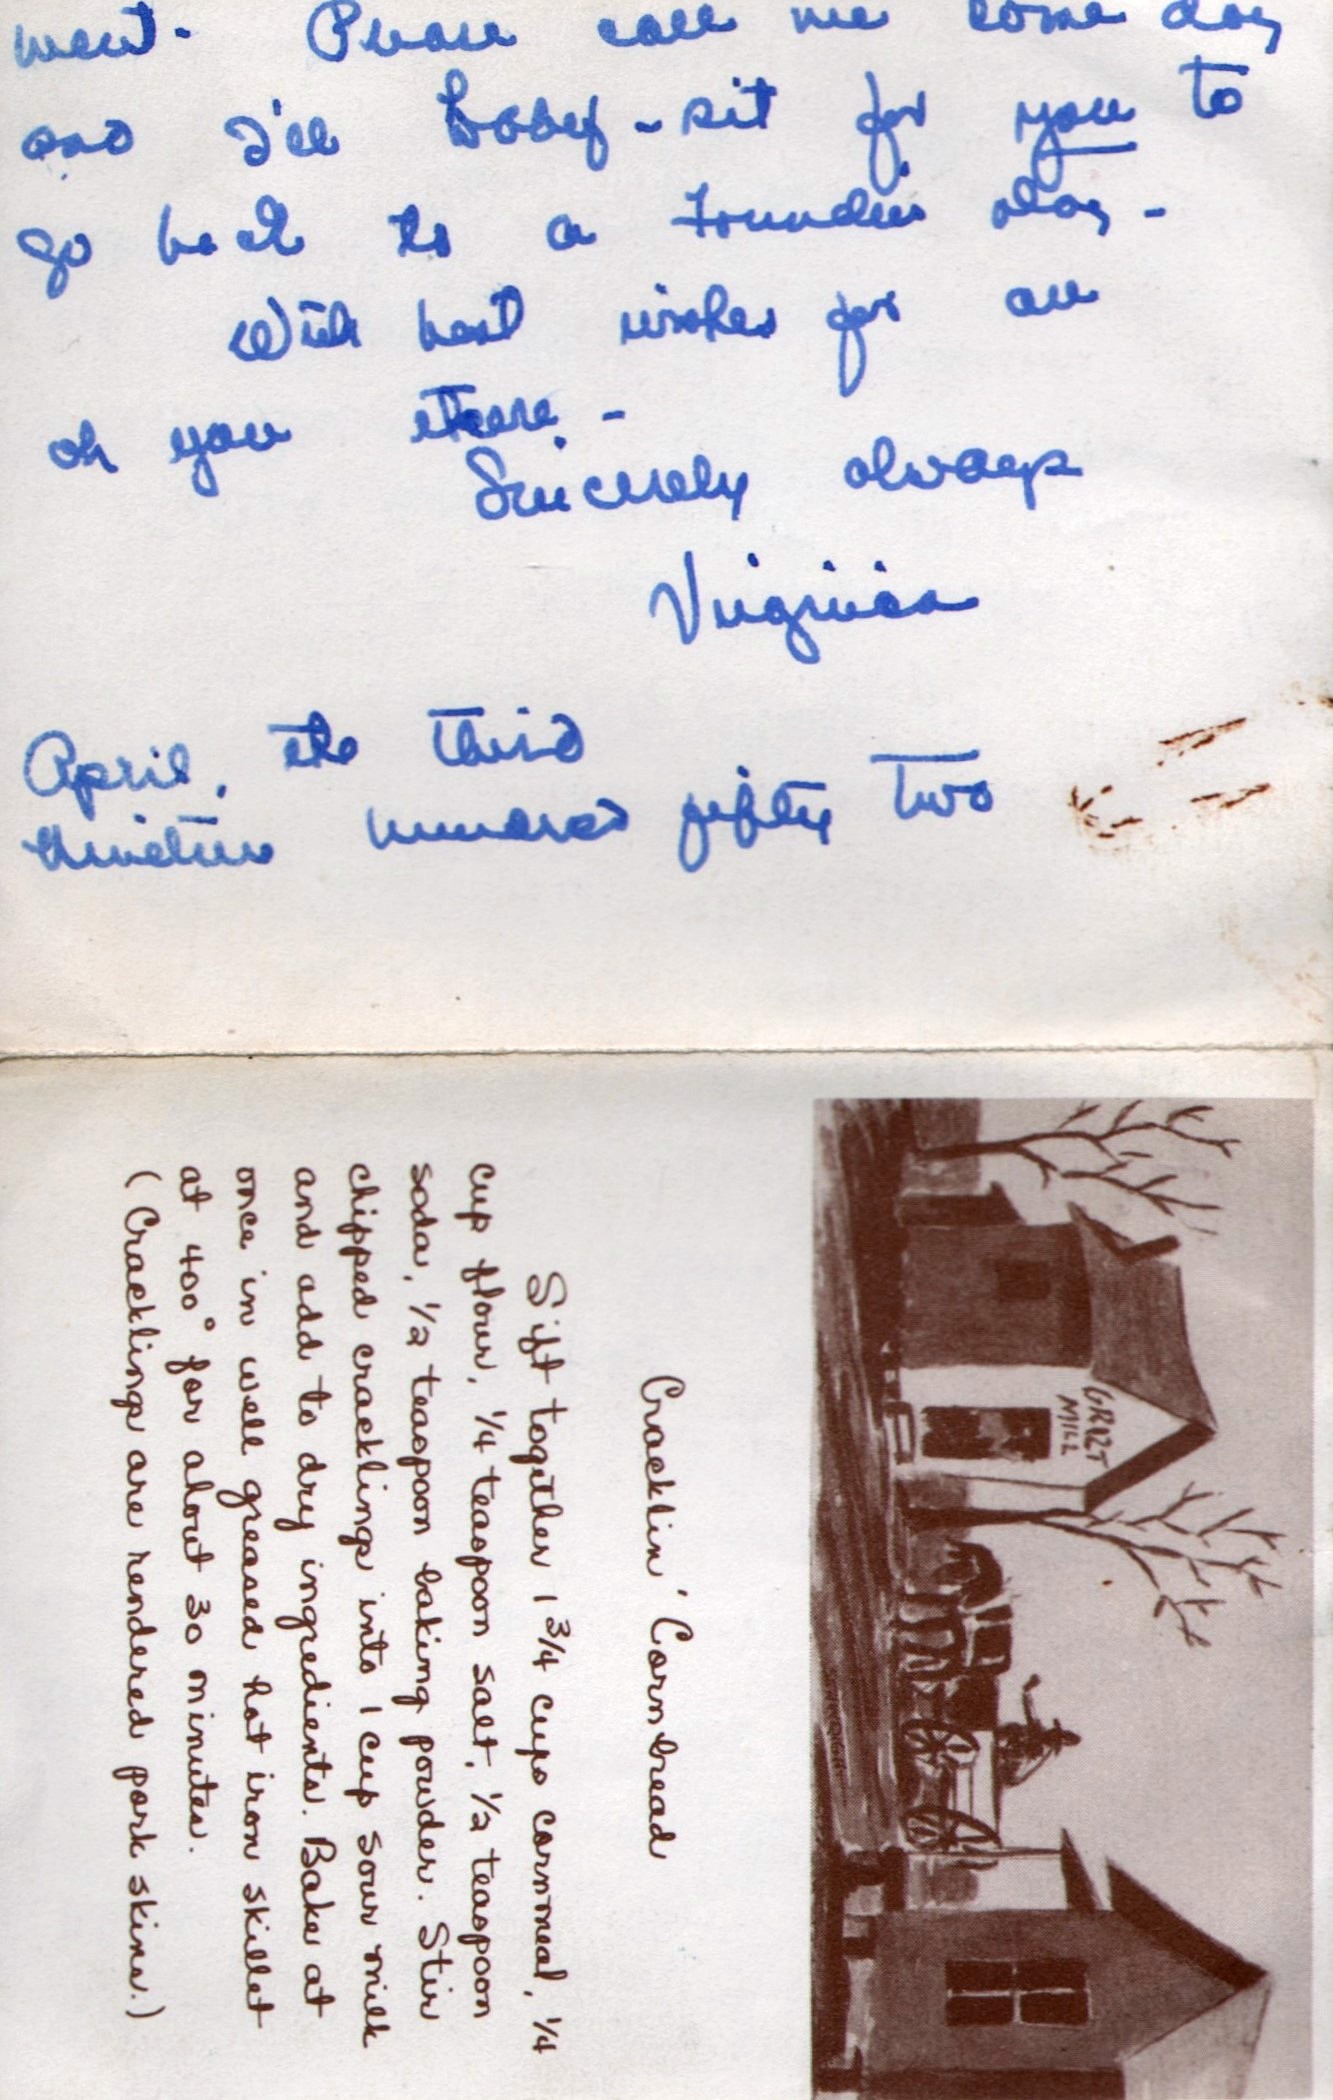 went. Please call me some day
and I'll baby-sit for you to
go back to a Founders day -
With best wishes for all
of you there -
Sincerely always
Virginia
April, the third
nineteen hundred fifty two
GRIZT
MILL
Cracklin' Cornbread
Sift together 1 3/4 cups cornmeal, 1/4
cup flour, 1/4 teaspoon salt, 1/2 teaspoon
soda, 1/2 teaspoon baking powder. Stir
chipped cracklings into 1 cup sour milk
and add to dry ingredients. Bake at
once in well greased hot iron skillet
at 400° for about 30 minutes.
(Cracklings are rendered pork skins.)